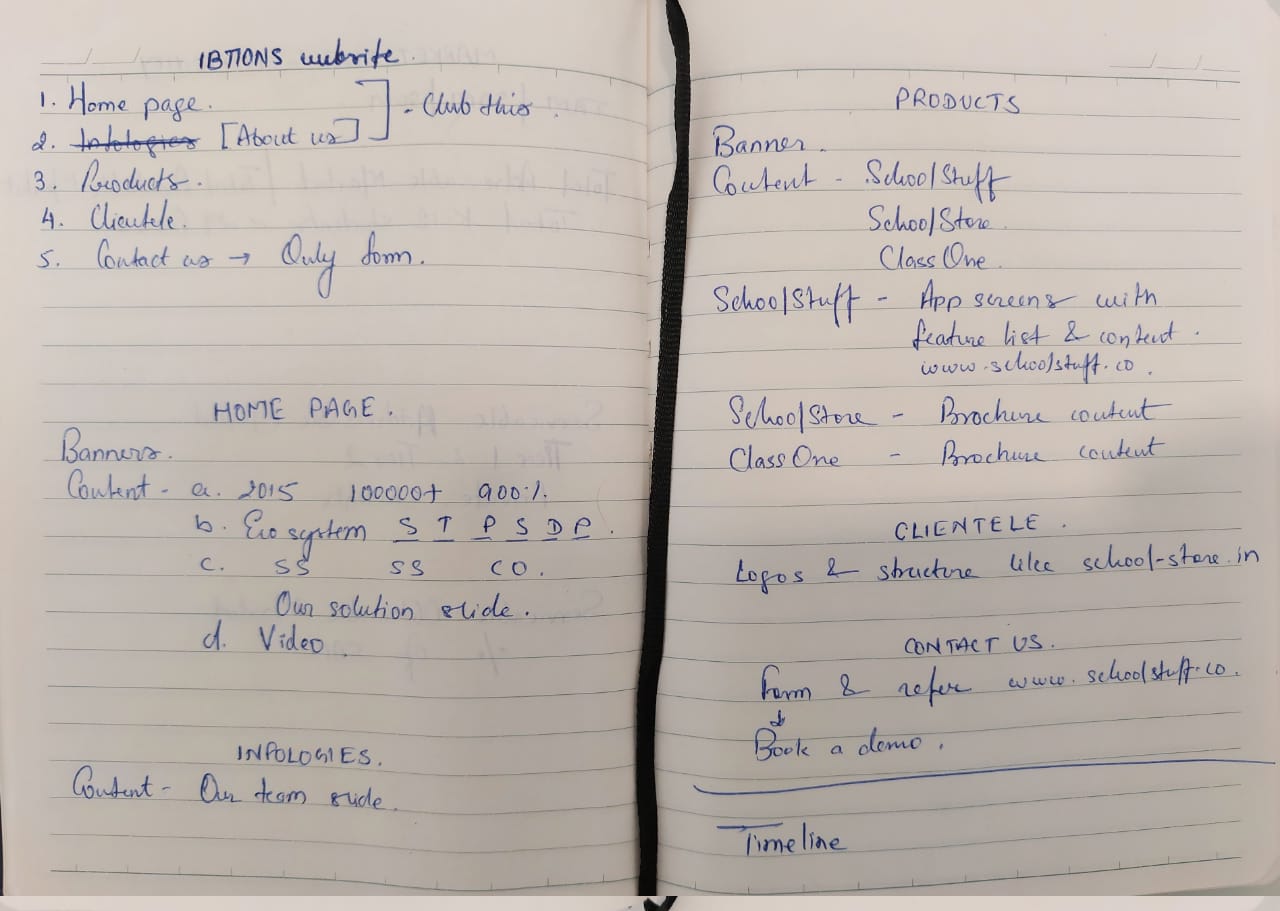 IBTIONS website.
1. Home page.
2. [About us] - Club this.
3. Products.
4. Clientele.
5. Contact us → Only form.
HOME PAGE.
Banners.
Content - a. 2015 100000+ 900%.
b. Eco system S T P S D P.
c. SS SS CO.
Our solution slide.
d. Video.
INFOLOGIES.
Content - Our team slide.
PRODUCTS
Banner.
Content - SchoolStuff
SchoolStore.
ClassOne.
SchoolStuff - App screens with
feature list & content.
www.schoolstuff.co.
SchoolStore - Brochure content
ClassOne - Brochure content
CLIENTELE.
Logos & structure like school-store.in
CONTACT US.
Form & refer www.schoolstuff.co.
↓
Book a demo.
Timeline